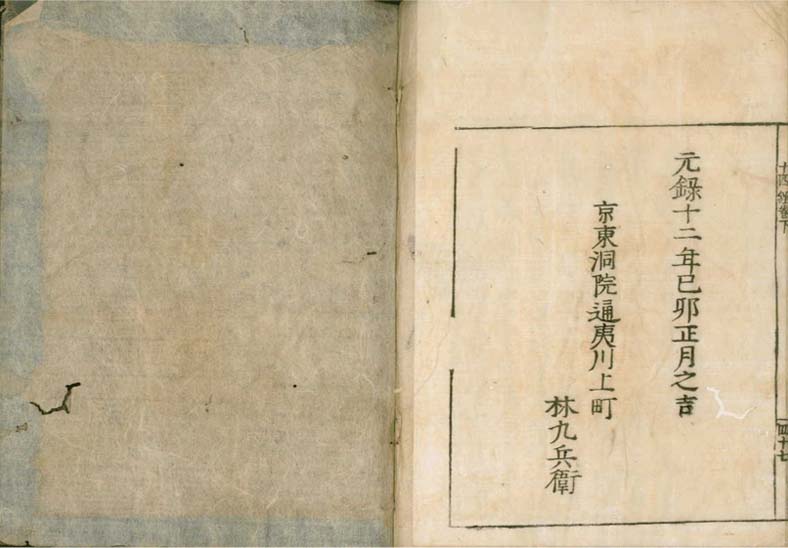 四十七
元録十二年己卯正月之吉
京東洞院通夷川上町
林九兵衛